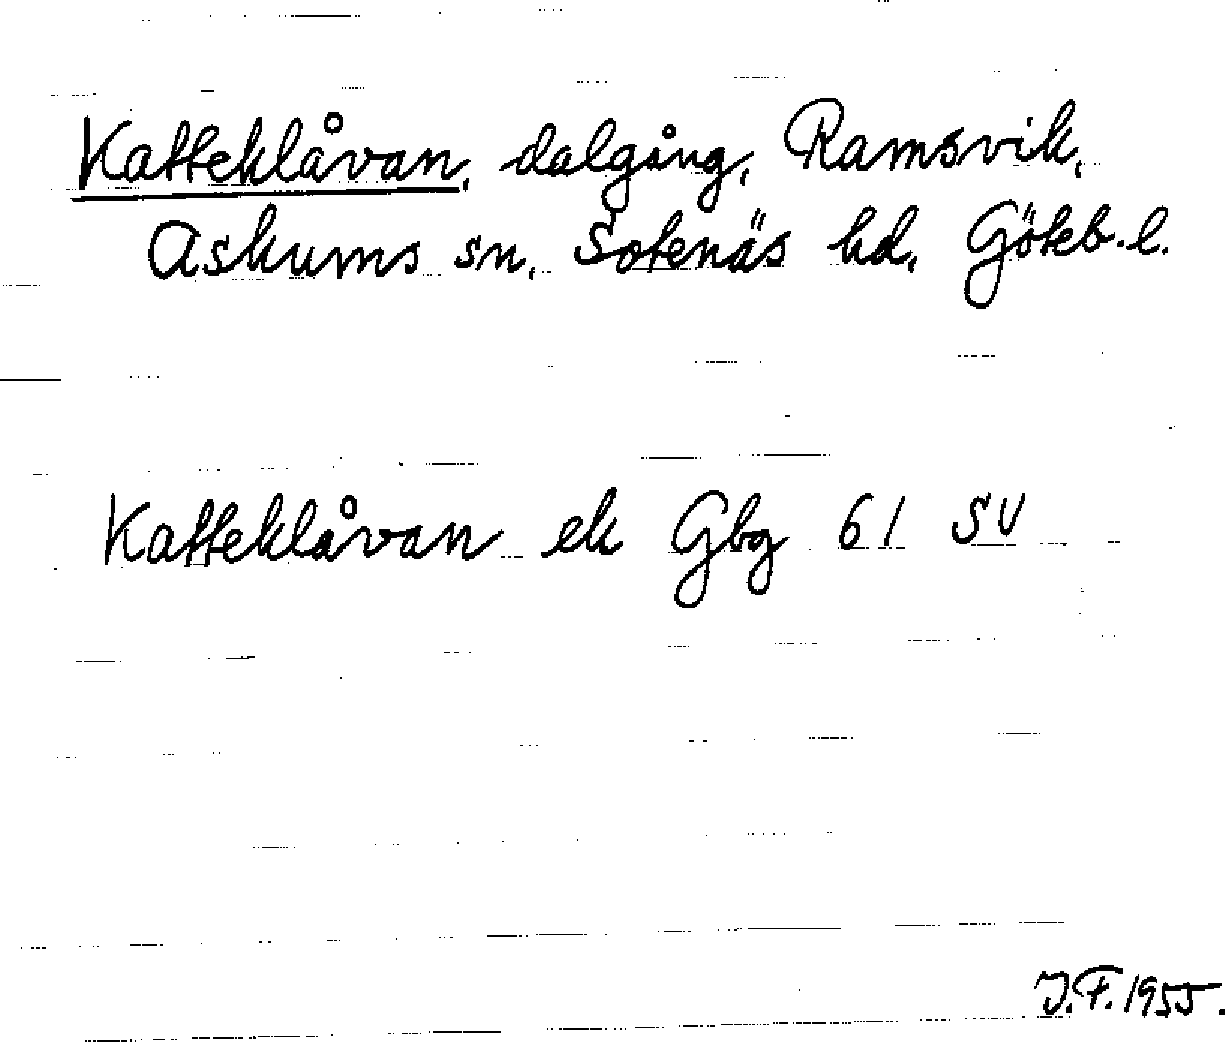 Katteklåvan, dalgång, Ramsvik,
Askums sn, Sotenäs hd, Göteb. l.
Katteklåvan ek Gbg 61 SV
J.F. 1955.